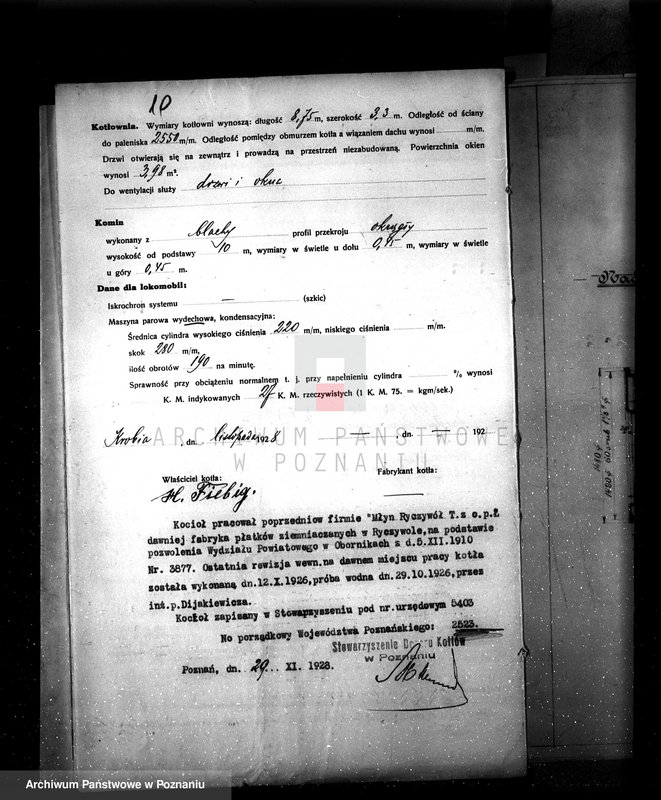 10
Kotłownia. Wymiary kotłowni wynoszą: długość 8,75 m, szerokość 3,3 m. Odległość od ściany
do paleniska 2550 m/m. Odległość pomiędzy obmurzem kotła a wiązaniem dachu wynosi m/m.
Drzwi otwierają się na zewnątrz i prowadzą na przestrzeń niezabudowaną. Powierzchnia okien
wynosi 3,98 m².
Do wentylacji służy drzwi i okna
Komin
wykonany z blachy profil przekroju okrągły
wysokość od podstawy 10 m, wymiary w świetle u dołu 0,45 m, wymiary w świetle
u góry 0,45 m.
Dane dla lokomobil:
Iskrochron systemu — (szkic)
Maszyna parowa wydechowa, kondensacyjna:
Średnica cylindra wysokiego ciśnienia 220 m/m, niskiego ciśnienia m/m.
skok 280 m/m,
ilość obrotów 190 na minutę.
Sprawność przy obciążeniu normalnem t. j. przy napełnieniu cylindra % wynosi
K. M. indykowanych K. M. rzeczywistych (1 K. M. 75. = kgm/sek.)
Krobia, dn. listopada 1928 — , dn. — 192
ARCHIWUM PAŃSTWOWE
W POZNANIU
Właściciel kotła: Fabrykant kotła:
H. Fiebig. —
Kocioł pracował poprzedniow firmie "Młyn Ryczywół T.z o.p.
dawniej fabryka płatków ziemniaczanych w Ryczywole, na podstawie
pozwolenia Wydziału Powiatowego w Obornikach z d.5.XII.1910
Nr. 3877. Ostatnia rewizja wewn.na dawnem miejscu pracy kotła
została wykonaną dn.12.X.1926, próba wodna dn.29.10.1926, przez
inż.p.Dijakiewicza.
Kocioł zapisany w Stowarzyszeniu pod nr.urzędowym 5403
No porządkowy Województwa Poznańskiego: 2523.
Stowarzyszenie Dozoru Kotłów
w Poznaniu
Poznań, dn. 29... XI. 1928.
Archiwum Państwowe w Poznaniu